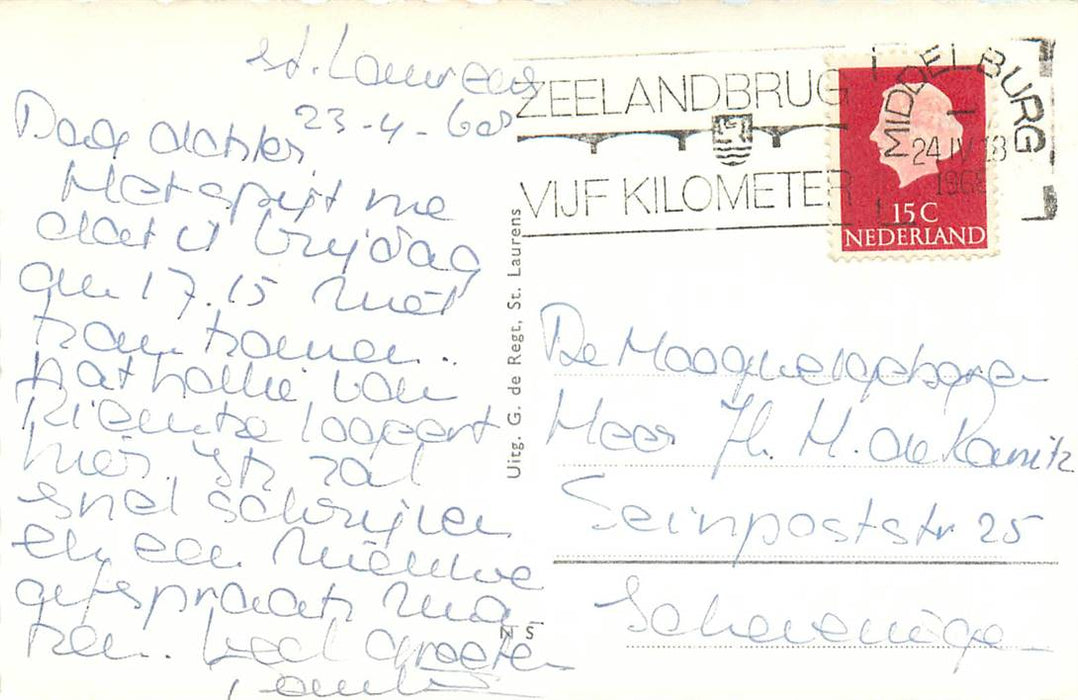 st. Laurens
23-4-68
Dag dokter
Het spijt me
dat U Vrijdag
om 17.15 niet
kan komen..
Nathalie van
Rientse logeert
hier. Ik zal
snel schrijven
en een nieuwe
afspraak ma
ken. veel groeten
ZEELANDBRUG
VIJF KILOMETER
MIDDELBURG
24 IV 18
196
15 C
NEDERLAND
Uitg. G. de Regt, St. Laurens
N S
De Hooggeboren
Heer H. M. de Kanitz
Seinpoststr 25
Scheveningen